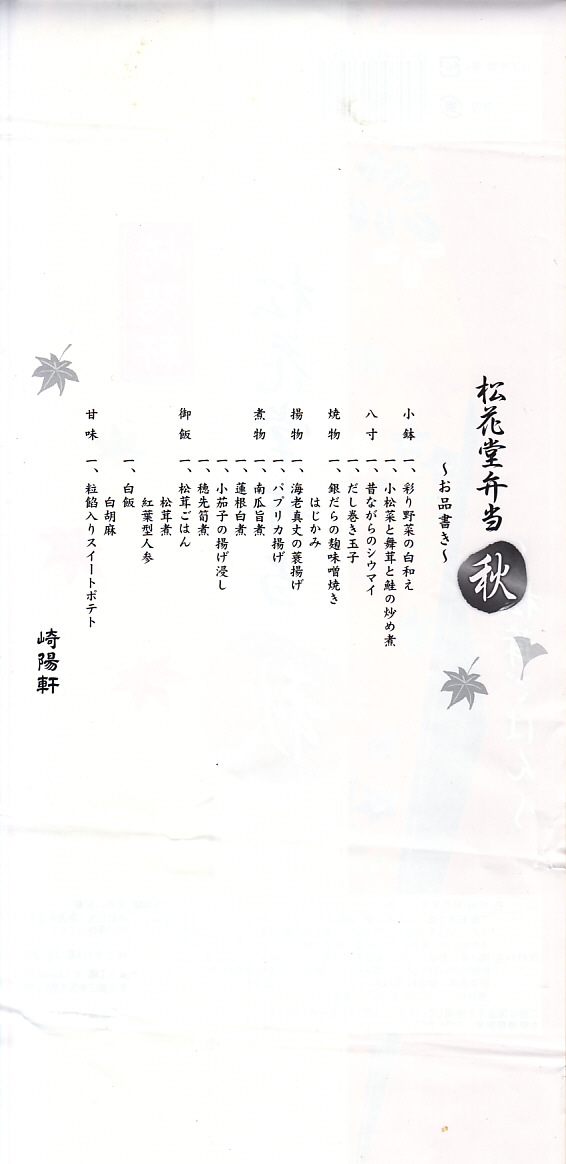 松花堂弁当 秋
～お品書き～
小鉢 一、彩り野菜の白和え
一、小松菜と舞茸と鮭の炒め煮
八寸 一、昔ながらのシウマイ
一、だし巻き玉子
焼物 一、銀だらの麹味噌焼き
はじかみ
揚物 一、海老真丈の蓑揚げ
一、パプリカ揚げ
煮物 一、南瓜旨煮
一、蓮根白煮
一、小茄子の揚げ浸し
一、穂先筍煮
御飯 一、松茸ごはん
松茸煮
紅葉型人参
一、白飯
白胡麻
甘味 一、粒餡入りスイートポテト
崎陽軒